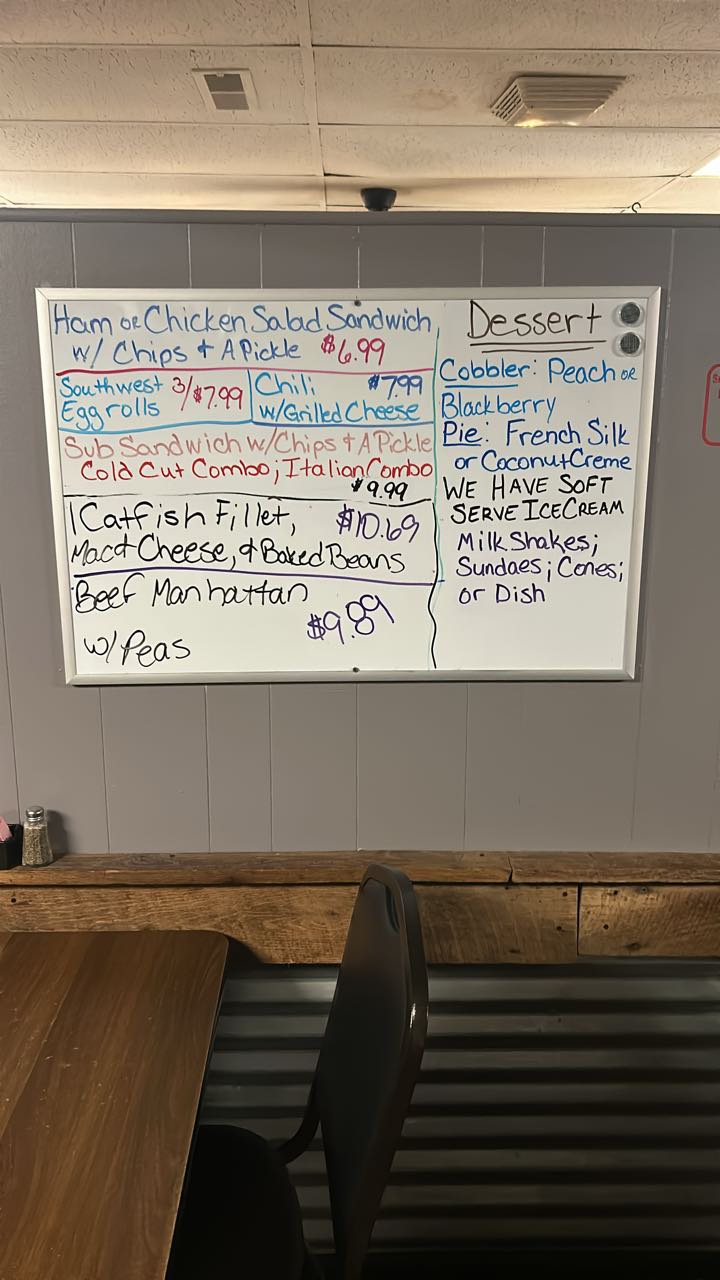 Ham or Chicken Salad Sandwich
w/ Chips & A Pickle $6.99
Southwest 3/$7.99
Egg rolls
Chili $7.99
w/Grilled Cheese
Sub Sandwich w/Chips & A Pickle
Cold Cut Combo; Italian Combo
$9.99
1 Catfish Fillet, $10.69
Mac & Cheese, & Baked Beans
Beef Manhattan
$9.89
w/Peas
Dessert
Cobbler: Peach or
Blackberry
Pie: French Silk
or Coconut Creme
WE HAVE SOFT
SERVE ICE CREAM
Milk Shakes;
Sundaes; Cones;
or Dish